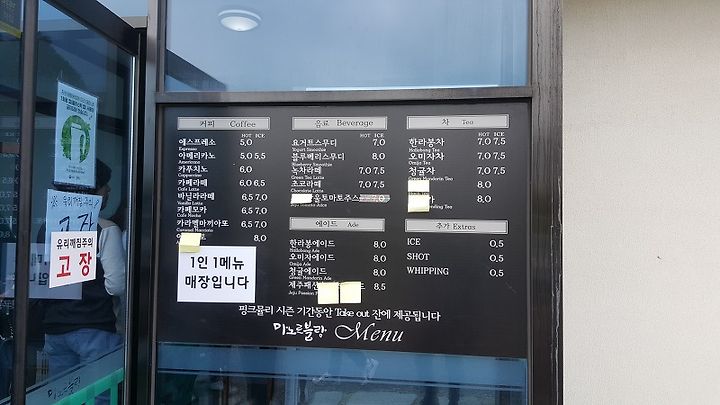 커피 Coffee
HOT ICE
에스프레소 5.0
Espresso
아메리카노 5.0 5.5
Americano
카푸치노 6.0
Cappuccino
카페라떼 6.0 6.5
Cafe Latte
바닐라라떼 6.5 7.0
Vanilla Latte
카페모카 6.5 7.0
Cafe Mocha
카라멜마끼아또 6.5 7.0
Caramel Macchiato
8.0
1인 1메뉴
매장입니다
음료 Beverage
HOT ICE
요거트스무디 7.0
Yogurt Smoothie
블루베리스무디 8.0
Blueberry Smoothie
녹차라떼 7.0 7.5
Green Tea Latte
초코라떼 7.0 7.5
Chocolate Latte
울토마토주스 7.0
에이드 Ade
한라봉에이드 8.0
Hallabong Ade
오미자에이드 8.0
Omija Ade
청귤에이드 8.0
Green Mandarin Ade
제주패션 8.5
Jeju Passion
차 Tea
HOT ICE
한라봉차 7.0 7.5
Hallabong Tea
오미자차 7.0 7.5
Omija Tea
청귤차 7.0 7.5
Green Mandarin Tea
차 8.0
Tea
추가 Extras
ICE 0.5
SHOT 0.5
WHIPPING 0.5
핑크뮬리 시즌 기간동안 Take out 잔에 제공됩니다
미노르블랑 Menu
유리깨짐주의
고장
유리깨짐주의
고장